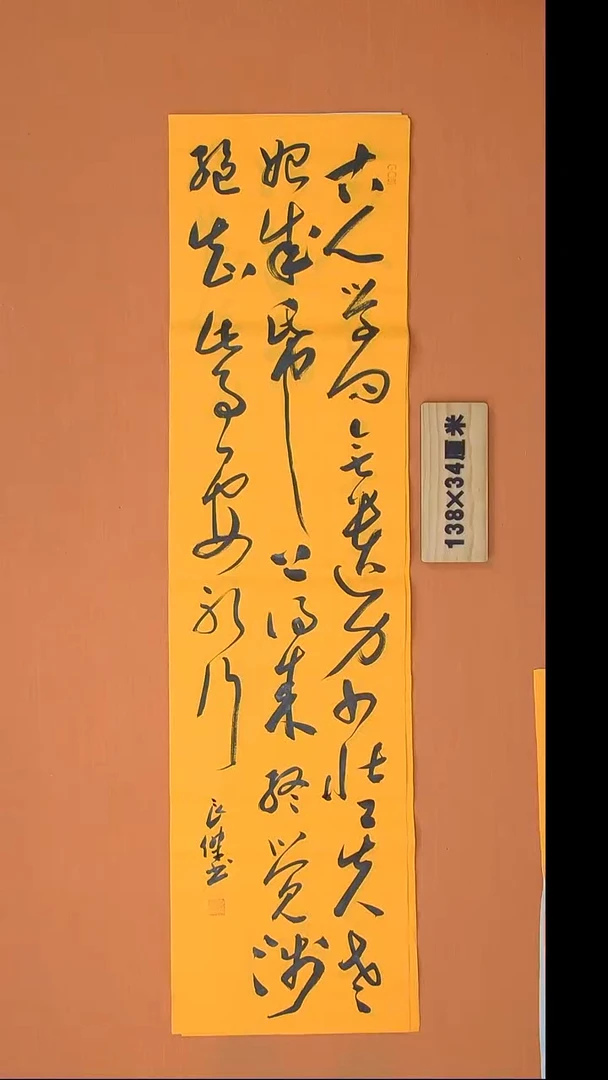 古人学问无遗力少壮工夫老
始成帋上得来终觉浅
绝知此事要躬行
良傑书
138×34厘米